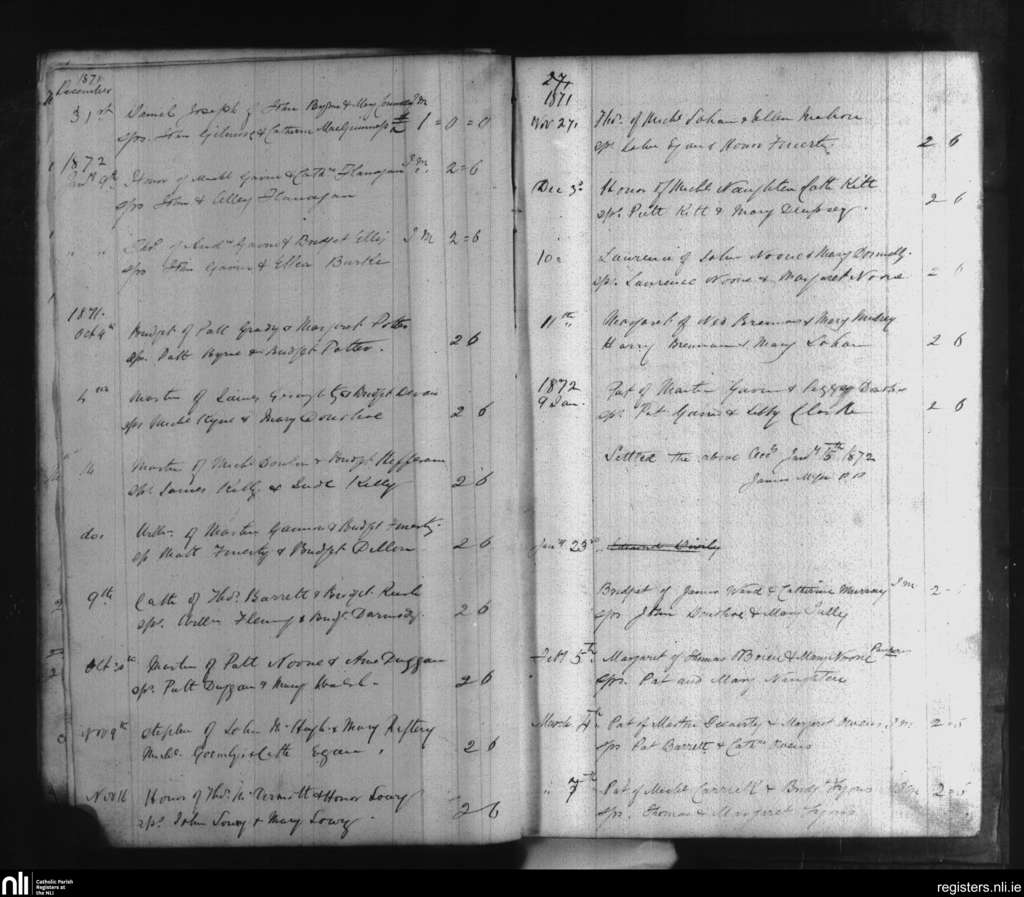 1871
December
31st Daniel Joseph of John Byrne & Mary J M
sps John Gilmore & Catherine MacGuinness 1 = 0 = 0
1872
Jany 9th Honor of Michl Gavin & Cathn Flanagan J M. 2 = 6
sps John & Elley Flanagan
" " Thos of Andw Gavin & Bridget Ellis J M 2 = 6
sps John Gavin & Ellen Burke
1871.
Oct 4th Bridget of Patt Grady & Margaret Potter
sps. Patt Byrne & Bridget Potter. 2 6
Martin of James & Bridget
sps Michl Kyne & Mary Donohoe 2 6
Martin of Michl & Bridget Heffernan
sps James Kelly & Kelly 2 6
do. Willm of Martin Gannon & Bridget Finerty
sp Matt Finerty & Bridget Dillon 2 6
9th Cath of Thos. Barrett & Bridget
sps. Willm Fleming & Bridgt 2 6
Martin of Patt Noone & Anne Duggan
sps. Patt Duggan & Mary Walsh 2 6
Nov 9th Stephen of John McHugh & Mary Raftery
Michl. & Cath Egan 2 6
Nov 16 Honor of Thos McDermott & Honor Lowry
sps. John Lowry & Mary Lowry. 2 6
27,
1871
Nov 27, Thos. of Michl Lohan & Ellen
sps John Egan & Honor Finerty 2 6
Dec 3d Honor of Michl Naughten Cath Kilt
sps. Patt Kilt & Mary Dempsey. 2 6
10 Laurence of John Noone & Mary Donnelly
sps. Laurence Noone & Margaret Noone 2 6
11th Margaret of Ned Brennan & Mary
Harry Brennan & Mary Lohan 2 6
1872
9 Jan. Pat of Martin Gavin & Peggy
sps. Pat Gavin & Libby Clarke 2 6
Settled the above Jany 15th 1872
James P P
Jany 23d
Bridget of James Ward & Catherine Murray J M 2
sps John Donohoe & Mary Tully
Feb 5th. Margaret of Thomas OBrien & Mary Noone
sps. Pat and Mary Naughten
March 4th Pat of Martin & Margaret J M 2
sps Pat Barrett & Cathn Owens
" 7th Pat of Michl Carrick & Bridgt Lyons 2
sps. Thomas & Margaret Lyons
nli Catholic Parish
Registers at
the NLI
registers.nli.ie